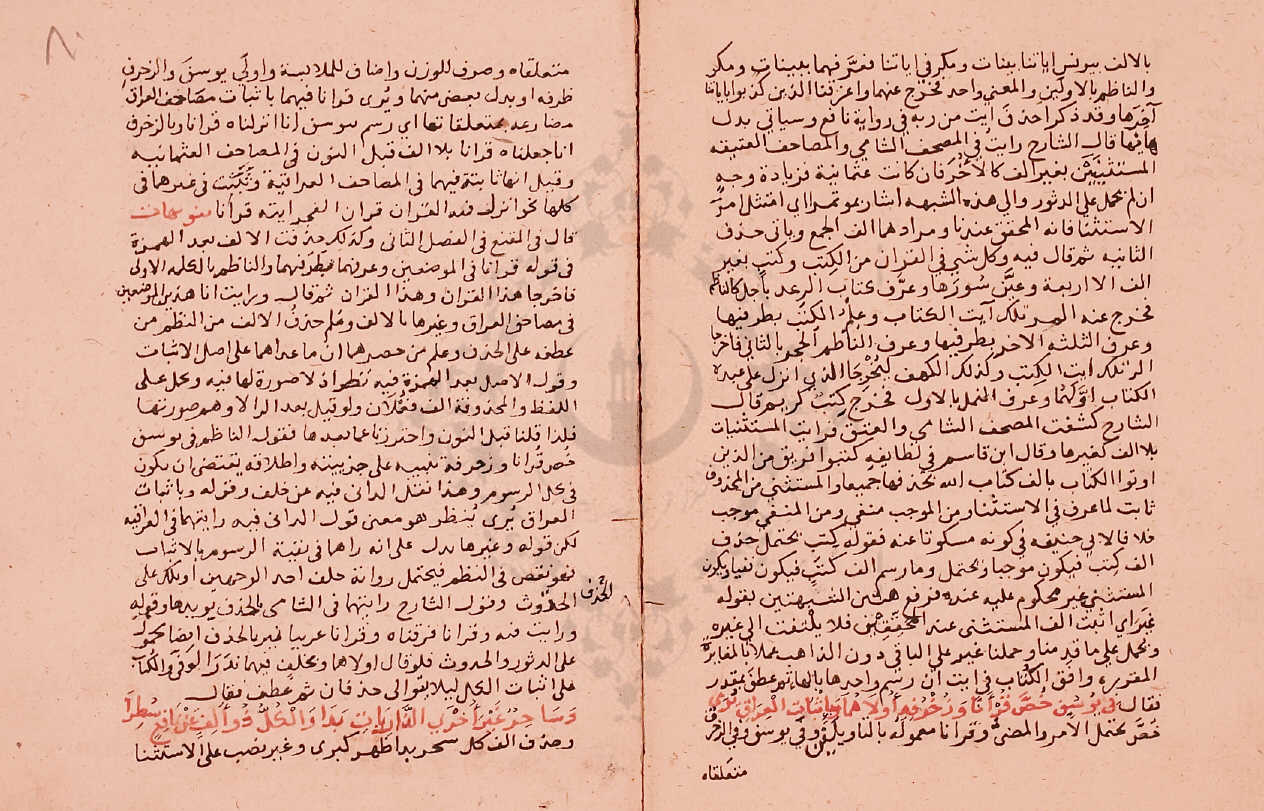 بالالف بيونس اياتنا بينات ومكر في اياتنا فعرّفهما ببينات ومكر
والناظم بالاولين والمعنى واحد فخرج عنهما واغرقنا الذين كذبوا باياتنا
آخرها وقد ذكرا حذف آيت من ربه في رواية نافع وسياتي بدل
هائها قال الشارح رايت في المصحف الشامي والمصاحف العتيقه
المستثنيين بغير الف كالاخر فان كانت عثمانية فزيادة وجه
ان لم نحمل على الدثور والى هذه الشبهه اشار بموتمرا اي امتثل امر
الاستثنا فانه المحقق عندنا ومرادهما الف الجمع وياتي حذف
الثانيه ثم قال فيه وكل شي في القران من الكتب وكتب بغير
الف الا اربعة وعيّن سورها وعرّف كتاب الرعد باجل كالناظم
فخرج عنه المر تلك آيت الكتاب وعلم الكتب بطرفيها
وعرف الثلثه الاخر بطرفيها وعرف الناظم الحجر بالثاني فاخرجا
الر تلك ايت الكتب وكذلك الكهف ليخرجا الذي انزل على عبده
الكتاب اولها وعرف النمل بالاول فخرج كتب كريم قال
الشارح كشفت المصحف الشامي والعتيق فرايت المستثنيات
بلا الف كغيرها وقال ابن قاسم في لطايفه كتبوا فريق من الذين
اوتوا الكتاب بالف كتاب الله بحذفها جميعا والمستثنى من المحذوف
ثابت لما عرف في الاستثنا من الموجب منفي ومن المنفي موجب
خلافا لابي حنيفه في كونه مسكوتا عنه فقوله كتب يحتمل حذف
الف كتب فيكون موجبا ويحتمل وما رسم الف كتب فيكون نفيا ويكون
المستثنى غير محكوم عليه عنده فرفع هتين الشبهتين بقوله
غبرا اي اثبت الف المستثنى عند المحققين فلا يلتفت الى غيره
ونحمل على ما قدمنا وحملنا غبر على الباقي دون الذاهب عملا بالمغايرة
المقرره وافق الكتاب في ايت ان رسم واحدها بالهاء ثم عطف بمقدر
فقال في يوسف خص قرآنا وزخرفه اولاهما وباثبات العراق يرى
خص يحتمل الامر والمضي وقرانا معموله بالتاويلين وفي يوسف وفي الزخرف
متعلقاه
متعلقاه وصرف للوزن واضاف للملابسة واولى يوسف والزخرف
ظرفه او بدل بعض منهما ويرى قرانا فيهما باثبات مصاحف العراق
مضارعه بمتعلقاتها اي رسم بيوسف انا انزلناه قرانا وبالزخرف
انا جعلناه قرانا بلا الف قبل النون في المصاحف العثمانيه
وقيل انها ثابتة فيهما في المصاحف العراقية وثبتت في غيرها في
كلها نحو انزل فيه القران قران الفجر ايته قرانا
قال في المقنع في الفصل الثاني وكذلك حذفت الالف بعد الهمزة
في قوله قرانا في الموضعين وعرفهما بطرفهما والناظم بالكلمه الاولى
فاخرجا هذا القران وهذا القران ثم قال ورايت انا هذين الموضعين
في مصاحف العراق وغيرها بالالف وعلم حذف الالف من النظم من
عطفه على الحذف وعلم من حصرهما ان ما عداهما على اصل الاثبات
وقول الاصل بعد الهمزة فيه نظر اذ لا صورة لها فيه ويحمل على
اللفظ والمحذوفة الف فعلان ولو قيل بعد الرا لاوهم صورتها
فلذا قلنا قبل النون واحترزنا عما بعدها فقول الناظم في يوسف
خص قرانا وزخرفه تنبيه على جزييته واطلاقه يقتضي ان يكون
في كل الرسوم وهذا نقل الداني فيه عن خلف وقوله وباثبات
العراق يرى ينظر هو معنى قول الداني فيه رايتهما في العراقيه
لكن قوله وغيرها يدل على انه راهما في بقية الرسوم بالاثبات
فهو نقص في النظم فيحتمل رواية خلف احد الوجهين او يدل على
الحدوث وقول الشارح رايتهما في الشامي بالحذف يويدها وقوله
الحذف
ورايت فيه وقرانا فرقناه وقرانا عربيا غير بالحذف ايضا محمول
على الدثور والحدوث فلو قال اولاهما وبخلف فيهما ندرا لوفى والكاف
على اثبات الكل ليلا يتوالى حذفان ثم عطف فقال
وساحر غير اخرى الذاريات بدا والكل ذو الف عن نافع سطرا
وحذف الف كل سحر بدا ظهر كبرى وغير نصب على الاستثنا